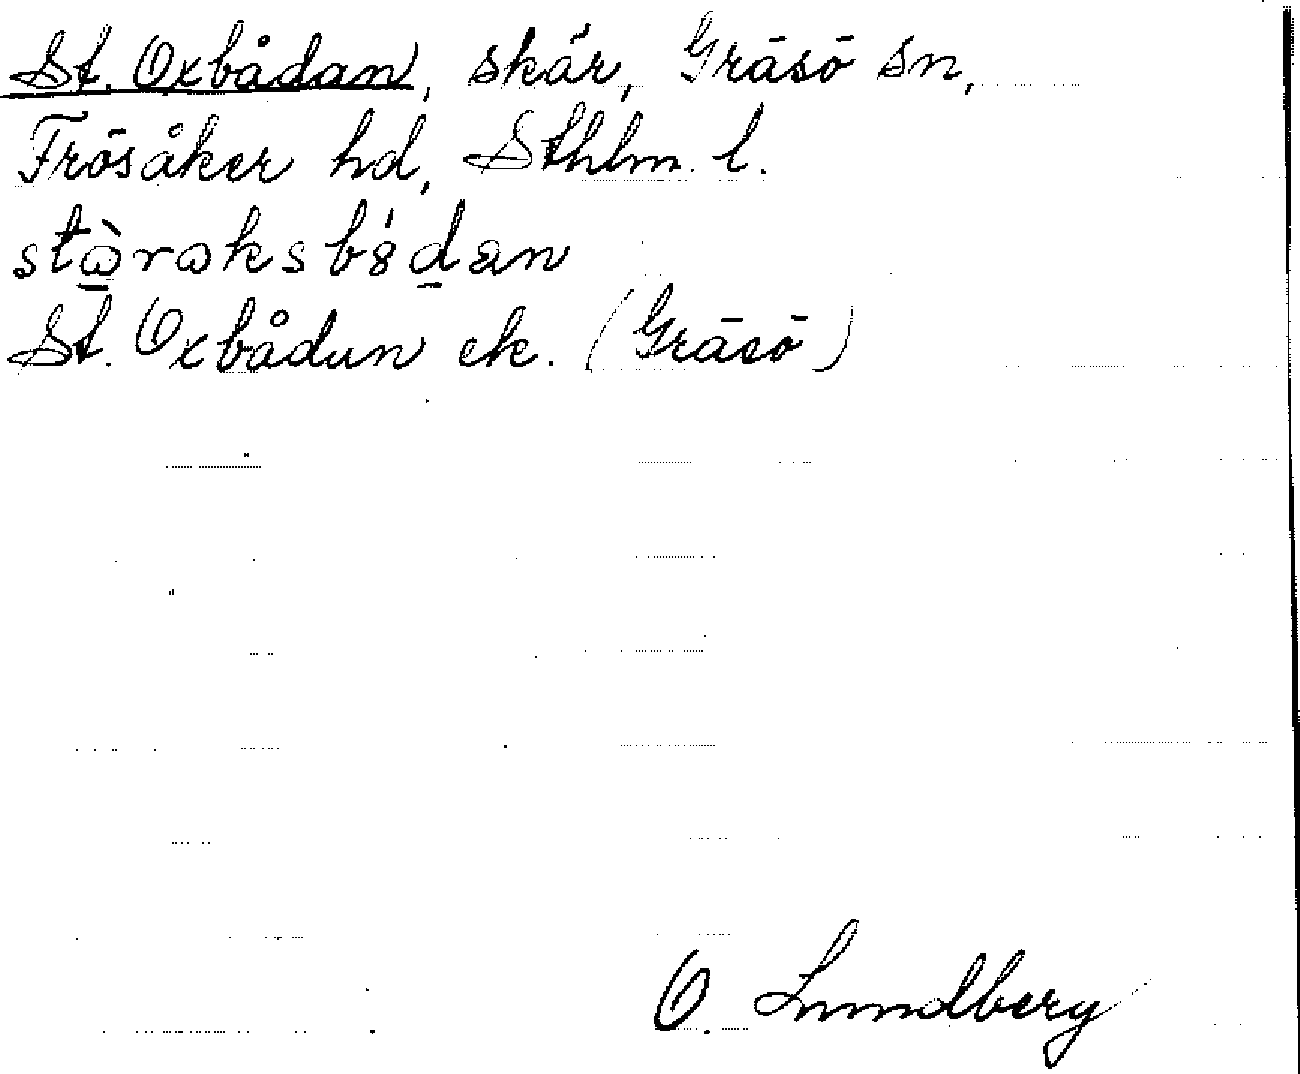 St. Oxbådan, skär, Gräsö sn,
Frösåker hd, Sthlm. l.
St. Oxbådun ek. (Gräsö)
O. Lundberg